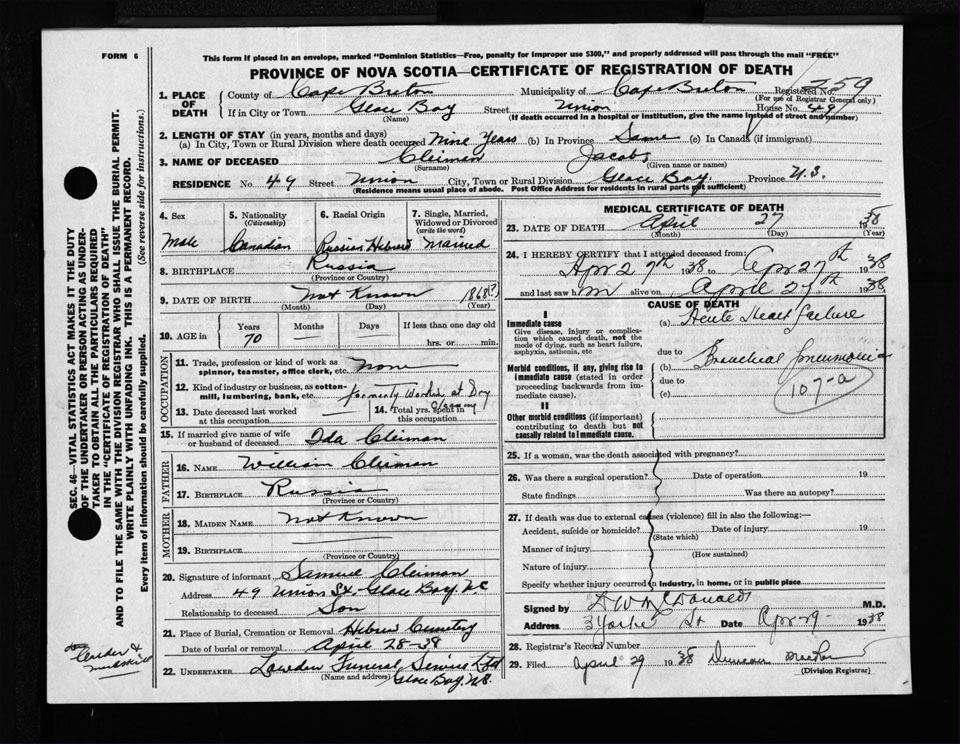 FORM 6
This form if placed in an envelope, marked "Dominion Statistics—Free, penalty for improper use $300," and properly addressed will pass through the mail "FREE"
PROVINCE OF NOVA SCOTIA—CERTIFICATE OF REGISTRATION OF DEATH
1. PLACE OF DEATH County of Cape Breton Municipality of Cape Breton Registered No. 259
(For use of Registrar General only)
If in City or Town Glace Bay Street Union House No. 49
(Name) (If death occurred in a hospital or institution, give the name instead of street and number)
2. LENGTH OF STAY (in years, months and days)
(a) In City, Town or Rural Division where death occurred Nine Years (b) In Province Same (c) In Canada (if immigrant)
3. NAME OF DECEASED Cleiman Jacob
(Surname) (Given name or names)
RESIDENCE No. 49 Street Union City, Town or Rural Division Glace Bay. Province N.S.
(Residence means usual place of abode. Post Office Address for residents in rural parts not sufficient)
4. Sex Male
5. Nationality (Citizenship) Canadian
6. Racial Origin Russian Hebrew
7. Single, Married, Widowed or Divorced (write the word) Married
8. BIRTHPLACE Russia
(Province or Country)
9. DATE OF BIRTH Not Known 1868(?)
(Month) (Day) (Year)
10. AGE in Years 70 Months — Days — If less than one day old
hrs. or min.
OCCUPATION
11. Trade, profession or kind of work as spinner, teamster, office clerk, etc. None
12. Kind of industry or business, as cotton-mill, lumbering, bank, etc. formerly Worked at Dry Cleaning
13. Date deceased last worked at this occupation —
14. Total yrs. spent in this occupation
15. If married give name of wife or husband of deceased Ida Cleiman
FATHER
16. NAME William Cleiman
17. BIRTHPLACE Russia
(Province or Country)
MOTHER
18. MAIDEN NAME Not Known
19. BIRTHPLACE
(Province or Country)
20. Signature of informant Samuel Cleiman
Address 49 Union St. Glace Bay. N.S.
Relationship to deceased Son
21. Place of Burial, Cremation or Removal Hebrew Cemetery
Date of burial or removal April 28-38
22. UNDERTAKER Lowden Funeral Service Ltd
(Name and address) Glace Bay. N.S.
MEDICAL CERTIFICATE OF DEATH
23. DATE OF DEATH April 27 1938
(Month) (Day) (Year)
24. I HEREBY CERTIFY that I attended deceased from:
Apr 27th 1938 to Apr 27th 1938
and last saw h m alive on April 27th 1938
CAUSE OF DEATH
I
Immediate cause
Give disease, injury or complication which caused death, not the mode of dying, such as heart failure, asphyxia, asthenia, etc
(a) Acute Heart failure
due to
Morbid conditions, if any, giving rise to immediate cause (stated in order proceeding backwards from immediate cause).
(b) Bronchial Pneumonia
due to
(c)
107-a
II
Other morbid conditions (if important) contributing to death but not causally related to immediate cause.
25. If a woman, was the death associated with pregnancy?
26. Was there a surgical operation? Date of operation 19
State findings Was there an autopsy?
27. If death was due to external causes (violence) fill in also the following:—
Accident, suicide or homicide? Date of injury 19
(State which)
Manner of injury
(How sustained)
Nature of injury
Specify whether injury occurred in industry, in home, or in public place
Signed by McDonald M.D.
Address St Date Apr-29- 1938
28. Registrar's Record Number
29. Filed April 29 1938 Duncan
(Division Registrar)
SEC. 46—VITAL STATISTICS ACT MAKES IT THE DUTY OF THE UNDERTAKER OR PERSON ACTING AS UNDERTAKER TO OBTAIN ALL THE PARTICULARS REQUIRED IN THE "CERTIFICATE OF REGISTRATION OF DEATH"
AND TO FILE THE SAME WITH THE DIVISION REGISTRAR WHO SHALL ISSUE THE BURIAL PERMIT.
WRITE PLAINLY WITH UNFADING INK. THIS IS A PERMANENT RECORD.
Every item of information should be carefully supplied. (See reverse side for instructions.)